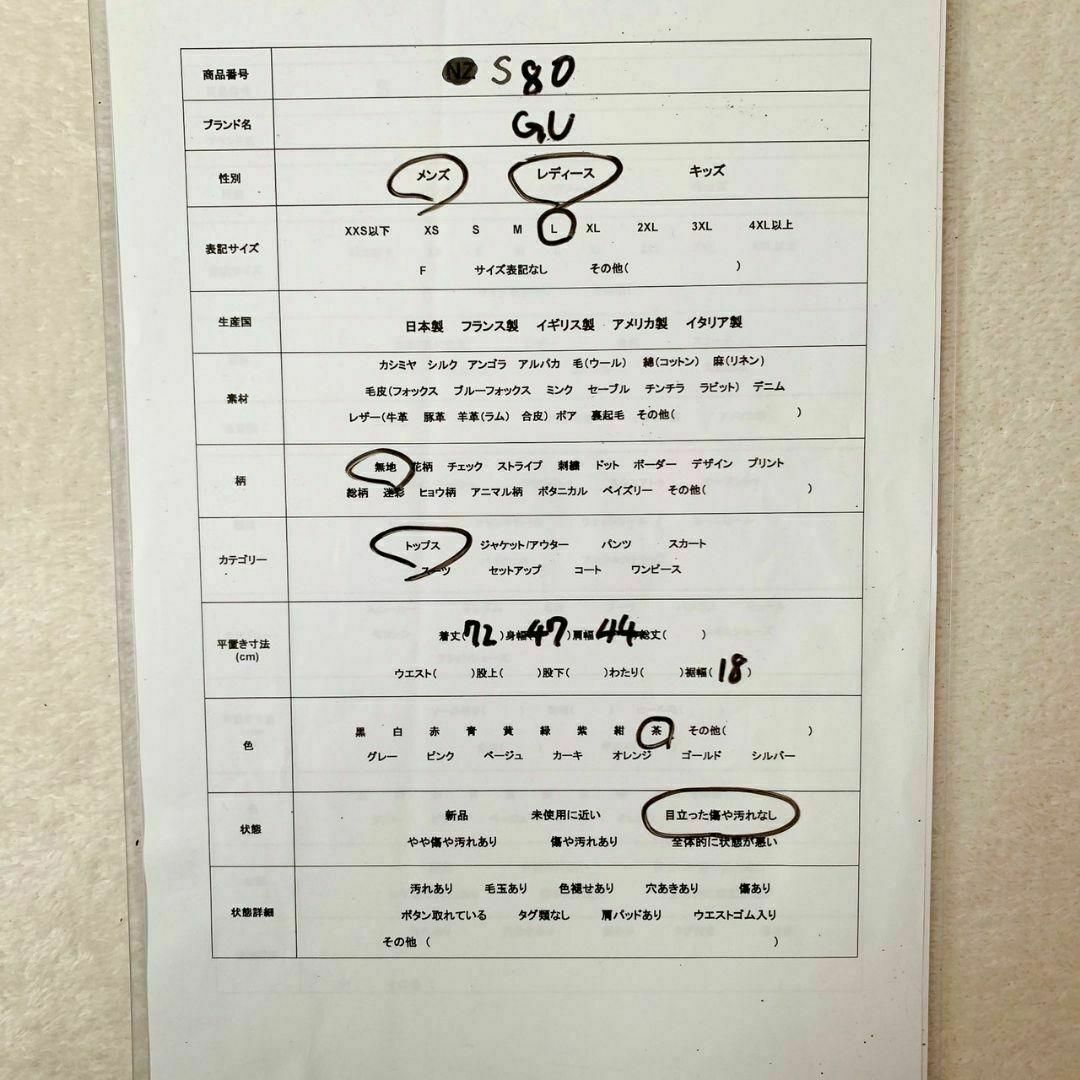 商品番号 NZ S 80
ブランド名 GU
性別 メンズ レディース キッズ
表記サイズ XXS以下 XS S M L XL 2XL 3XL 4XL以上
F サイズ表記なし その他( )
生産国 日本製 フランス製 イギリス製 アメリカ製 イタリア製
素材 カシミヤ シルク アンゴラ アルパカ 毛(ウール) 綿(コットン) 麻(リネン)
毛皮(フォックス ブルーフォックス ミンク セーブル チンチラ ラビット) デニム
レザー(牛革 豚革 羊革(ラム) 合皮) ボア 裏起毛 その他( )
柄 無地 花柄 チェック ストライプ 刺繍 ドット ボーダー デザイン プリント
総柄 迷彩 ヒョウ柄 アニマル柄 ボタニカル ペイズリー その他( )
カテゴリー トップス ジャケット/アウター パンツ スカート
スーツ セットアップ コート ワンピース
平置き寸法 (cm) 着丈(72)身幅(47)肩幅(44)総丈( )
ウエスト( )股上( )股下( )わたり( )裾幅(18)
色 黒 白 赤 青 黄 緑 紫 紺 茶 その他( )
グレー ピンク ベージュ カーキ オレンジ ゴールド シルバー
状態 新品 未使用に近い 目立った傷や汚れなし
やや傷や汚れあり 傷や汚れあり 全体的に状態が悪い
状態詳細 汚れあり 毛玉あり 色褪せあり 穴あきあり 傷あり
ボタン取れている タグ類なし 肩パッドあり ウエストゴム入り
その他 ( )